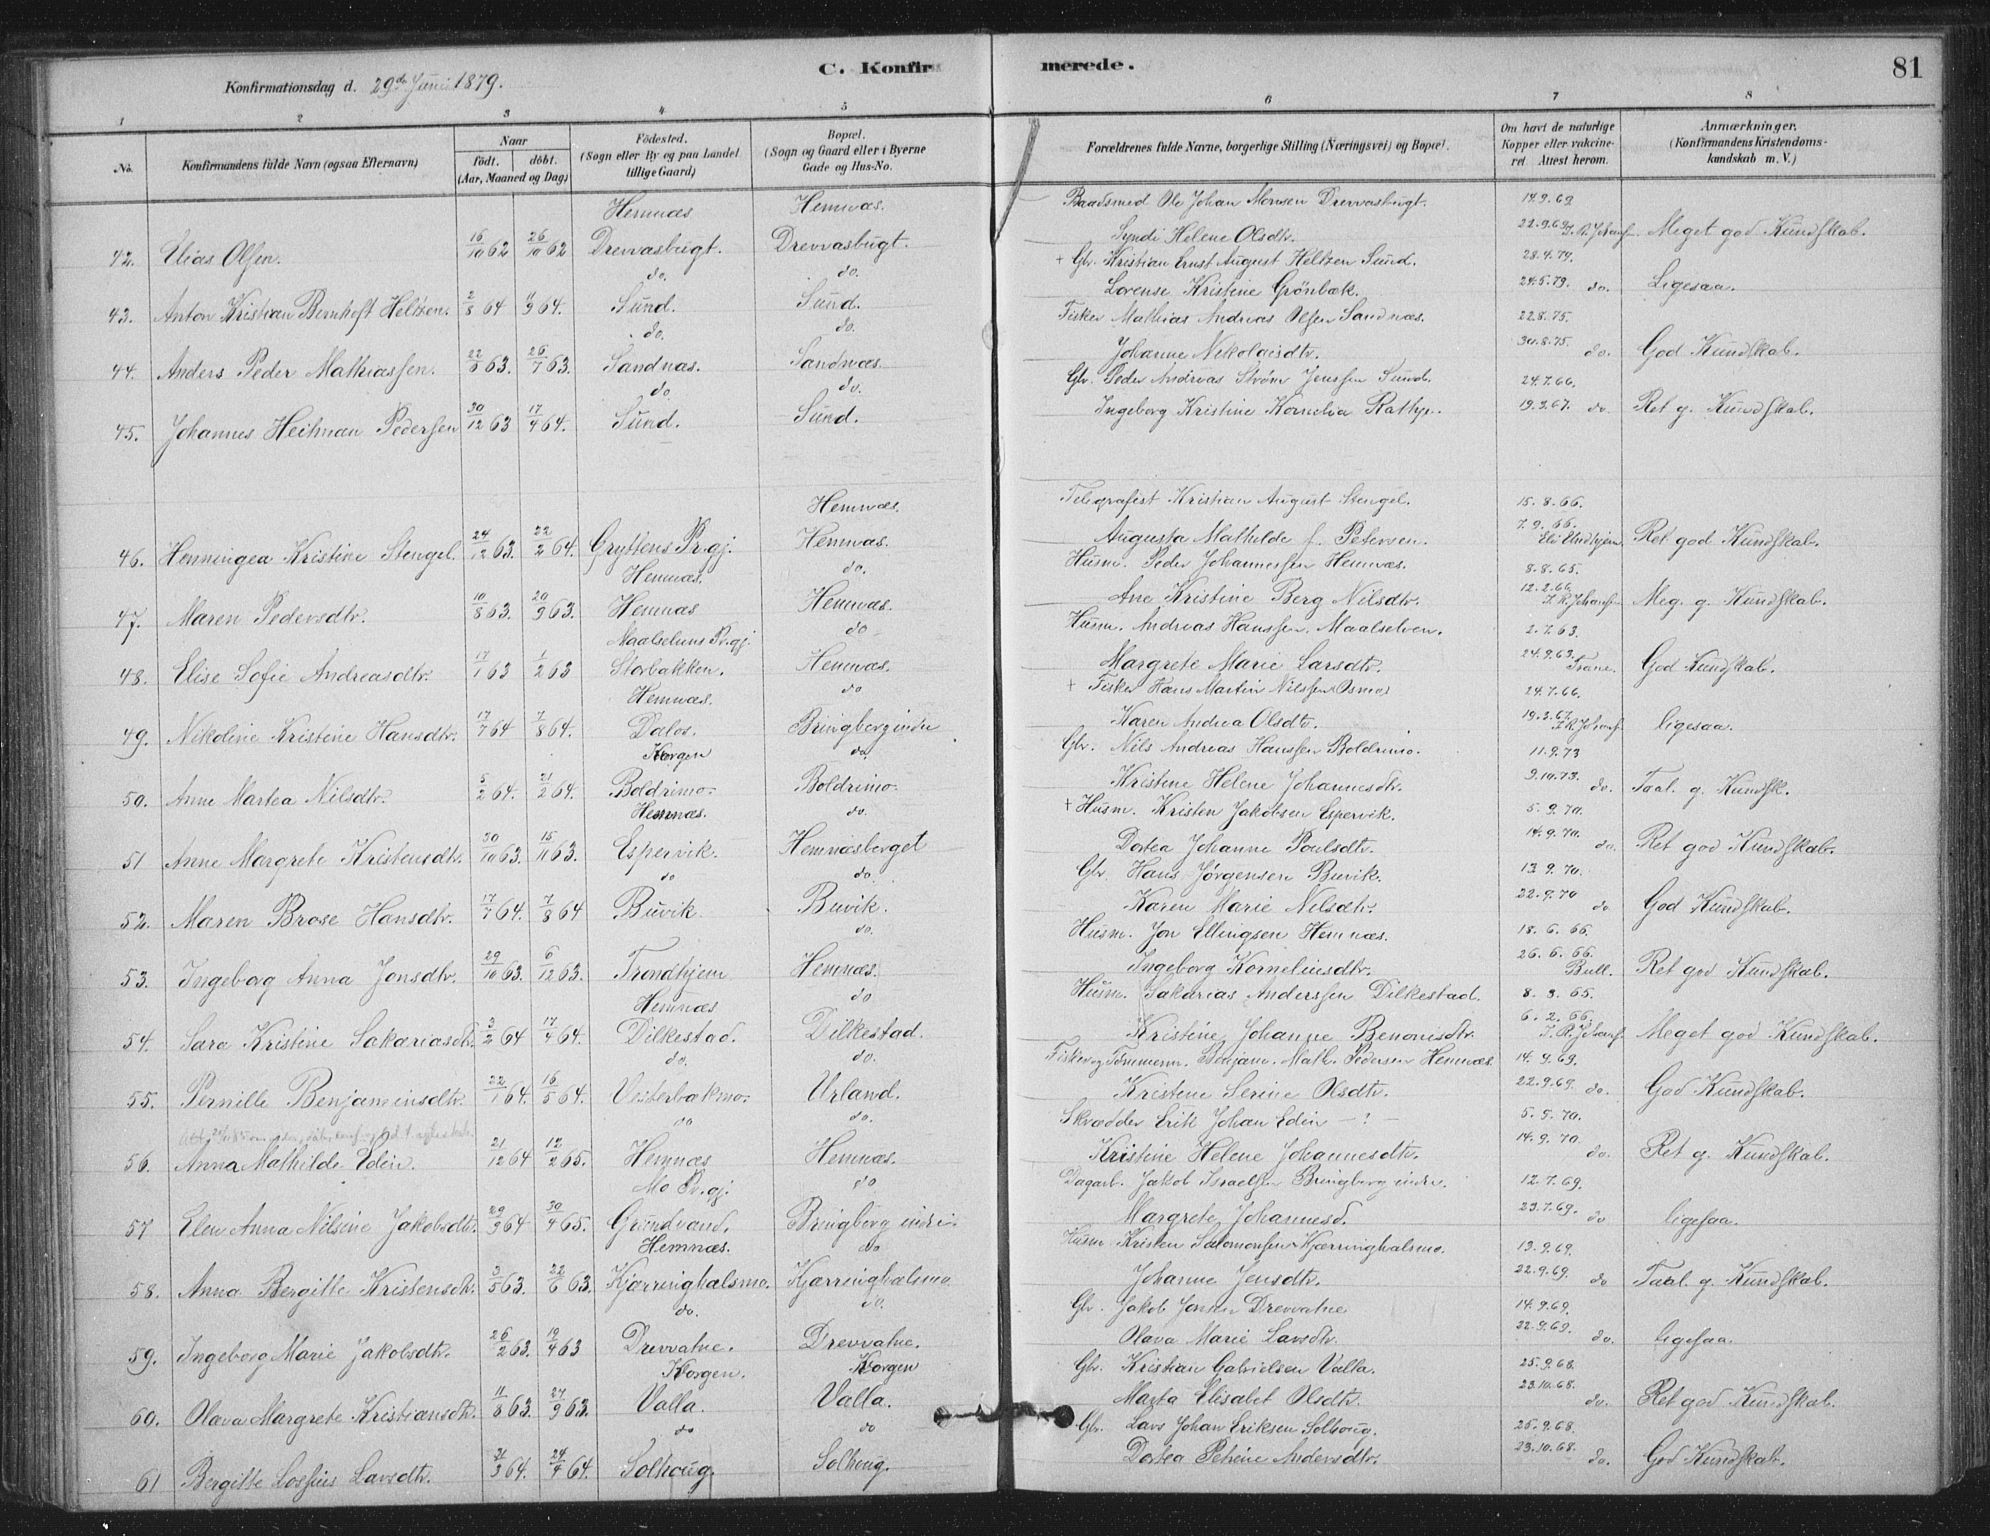 C. Konfirmerede.
81
Konfirmationsdag d. 29de Juni 1879.
1 2 3 4 5 6 7 8
No. Konfirmandens fulde Navn (ogsaa Efternavn) Naar födt. döbt. (Aar, Maaned og Dag) Födested. (Sogn eller By og paa Landet tillige Gaard) Bopæl. (Sogn og Gaard eller i Byerne Gade og Hus-No. Forældrenes fulde Navne, borgerlige Stilling (Næringsvei) og Bopæl. Om havt de naturlige Kopper eller vaccineret. Attest herom. Anmærkninger. (Konfirmandens Kristendomskundskab m. V.)
Hemnæs Hemnæs. Baadsmed Ole Johan Monsen Drevvasbugt. 14.9.69
42. Elias Olsen. 16/10 62 26/10 62 Drevvasbugt. Drevvasbugt. Syndi Helene Olsdtr. 22.9.69 Meget god Kundskab.
do. do. + Gbr. Kristian Ernst August Heltzen Sund. 28.4.79.
43. Anton Kristian Bernhoft Heltzen. 2/8 64 4/9 64. Sund. Sund. Lorense Kristine Grönbæk. 24.5.79. do. Ligesaa.
do. do. Fisker Mathias Andreas Olsen Sandnæs. 22.8.75.
44. Anders Peder Mathiassen. 22/6 63. 26/7 63. Sandnæs. Sandnæs. Johanne Nikolaisdtr. 30.8.75. do. God Kundskab.
do do. Gbr. Peder Andreas Ström Jenssen Sund. 24.7.66.
45. Johannes Heitman Pedersen 30/12 63 17/4 64. Sund. Sund. Ingeborg Kristine Kornelia 19.3.67. do. Ret g. Kundskab.
Hemnæs. Telegrafist Kristian August Stengel. 15.8.66.
46. Henningea Kristine Stengel. 24/12 63. 22/2 64. Gryttens Pr.gj. Hemnæs. Augusta Mathilde f. Petersen. 7.9.66. Ret god Kundskab.
Hemnæs. do. Husm. Peder Johannessen Hemnæs. 8.8.65.
47. Maren Pedersdtr. 10/8 63. 20/9 63. Hemnæs Hemnæs. Ane Kristine Berg Nilsdtr. 12.2.66 Meg. g. Kundskab.
Maalselvens Pr.gj. do Husm. Andreas Hanssen. Maalselven. 2.7.63.
48. Elise Sofie Andreasdtr. 17/1 63 1/2 63 Storbakken. Hemnæs. Margrete Marie Larsdtr. 24.9.63. Trane. God Kundskab.
Hemnæs. do + Fisker Hans Martin Nilssen 24.7.66.
49. Nikoline Kristine Hansdtr. 17/7 64 7/8 64. Dalos. Bringberg indre Karen Andrea Olsdtr. 19.3.67. ligesaa.
Korgen do. Gbr. Nils Andreas Hanssen Boldrimo. 11.9.73
50. Anne Martea Nilsdtr. 5/2 64. 21/2 64. Boldrimo. Boldrimo. Kristine Helene Johannesdtr. 9.10.73. do. Taal. g. Kundsk.
Hemnæs. do. + Husm. Kristen Jakobsen Espervik. 5.9.70.
51 Anne Margrete Kristensdtr. 30/10 63. 15/11 63. Espervik. Hemnæsberget Dortea Johanne Poulsdtr. 14.9.70. do. Ret god Kundskab.
do do. Gbr. Hans Jørgensen Buvik. 13.9.70.
52. Maren Brose Hansdtr. 17/7 64. 7/8 64 Buvik. Buvik. Karen Marie Nilsdtr. 22.9.70 do. God Kundskab.
do. Husm. Jon Ellingsen Hemnæs. 18.6.66.
53. Ingeborg Anna Jonsdtr. 29/10 63. 6/12 63. Trondhjem Hemnæs. Ingeborg Korneliusdtr. 26.6.66. Bull. Ret god Kundskab.
Hemnæs do Husm. Sakarias Anderssen Dilkestad. 8.3.65.
54. Sara Kristine Sakariasdtr. 3/2 64 17/4 64. Dilkestad. Dilkestad. Kristine Johanne Benonisdtr. 6.2.66. Meget god Kundskab.
do. do. Fisker og Tömmerm. Benjam. Math. Pedersen Hemnæs. 14.9.69.
55. Pernille Benjaminsdtr. 22/1 64. 16/5 64. Vesterbakmo. Urland. Kristine Serine Olsdtr. 22.9.69. do. God Kundskab.
do do. Skrædder Erik Johan Edin —?— 5.5.70.
56. Anna Mathilde Edin. 21/12 64 12/2 65. Hemnæs Hemnæs. Kristine Helene Johannesdtr. 14.9.70. do. Ret g. Kundskab.
Mo Pr.gj. do Dagarb. Jakob Israelsen Bringberg indre. 12.7.69.
57 Elen Anna Nilsine Jakobsdtr. 29/9 64 30/4 65. Grundvand. Bringberg indre. Margrete Johannesd. 23.7.69. do ligesaa.
Hemnæs. do Husm. Kristen Salomonsen Kjærringhalsmo. 13.9.69.
58. Anna Bergitte Kristensdtr. 3/5 63. 22/6 63. Kjærringhalsmo. Kjærringhalsmo. Johanne Jensdtr. 22.9.69. do Taal. g. Kundskab.
do. do. Gbr. Jakob Jonsen Drevvatne 14.9.69.
59. Ingeborg Marie Jakobsdtr. 26/2 63. 19/4 63 Drevvatne. Drevvatne. Olava Marie Larsdtr. 22.9.69. do. ligesaa.
Korgen. Korgen Gbr. Kristian Gabrielsen Valla. 25.9.68.
60. Olava Margrete Kristiansdtr. 11/8 63. 27/9 63. Valla. Valla. Marta Elisabet Olsdtr. 23.10.68. do. Ret god Kundskab.
do do Gbr. Lars Johan Eriksen Solhoug. 25.9.68.
61 Bergitte Larsdtr. 31/3 64. 24/4 64. Solhoug. Solhoug. Dortea Petrine Andersdtr. 23.10.68. do. God Kundskab.